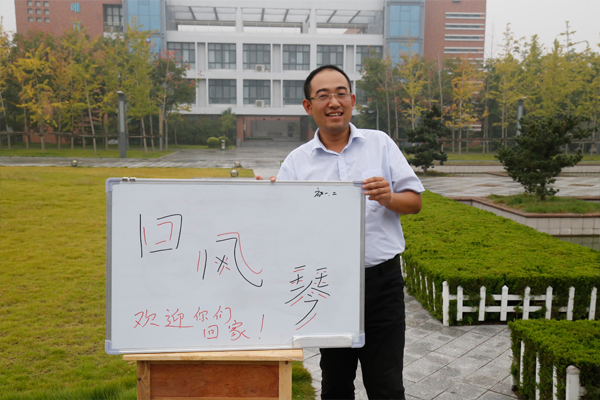 初一.2
回风琴
欢迎你们
回家！